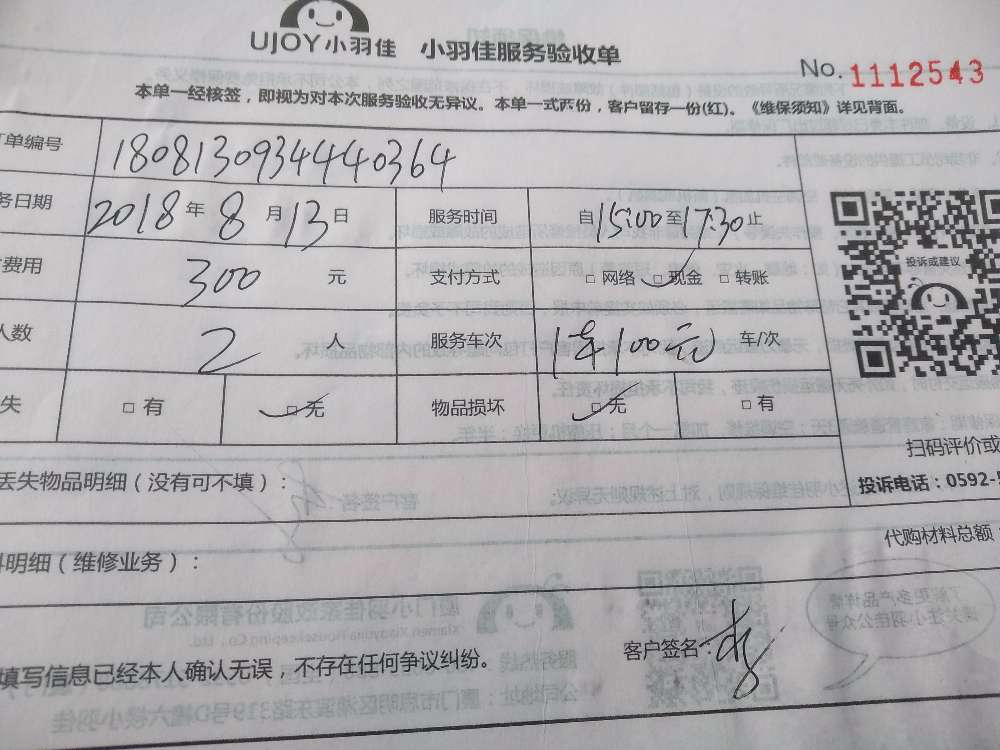 UJOY小羽佳 小羽佳服务验收单
No. 1112543
本单一经核签，即视为对本次服务验收无异议。本单一式两份，客户留存一份(红)。《维保须知》详见背面。
单编号 180813093444036​4
务日期 2018年8月13日 服务时间 自15:00至17:30止
费用 300 元 支付方式 □网络 □现金 □转账
人数 2 人 服务车次 1车100元 车/次
投诉或建议
失 □有 □无 物品损坏 □无 □有
扫码评价或
丢失物品明细（没有可不填）：
投诉电话：0592-
代购材料总额
明细（维修业务）：
填写信息已经本人确认无误，不存在任何争议纠纷。 客户签名：